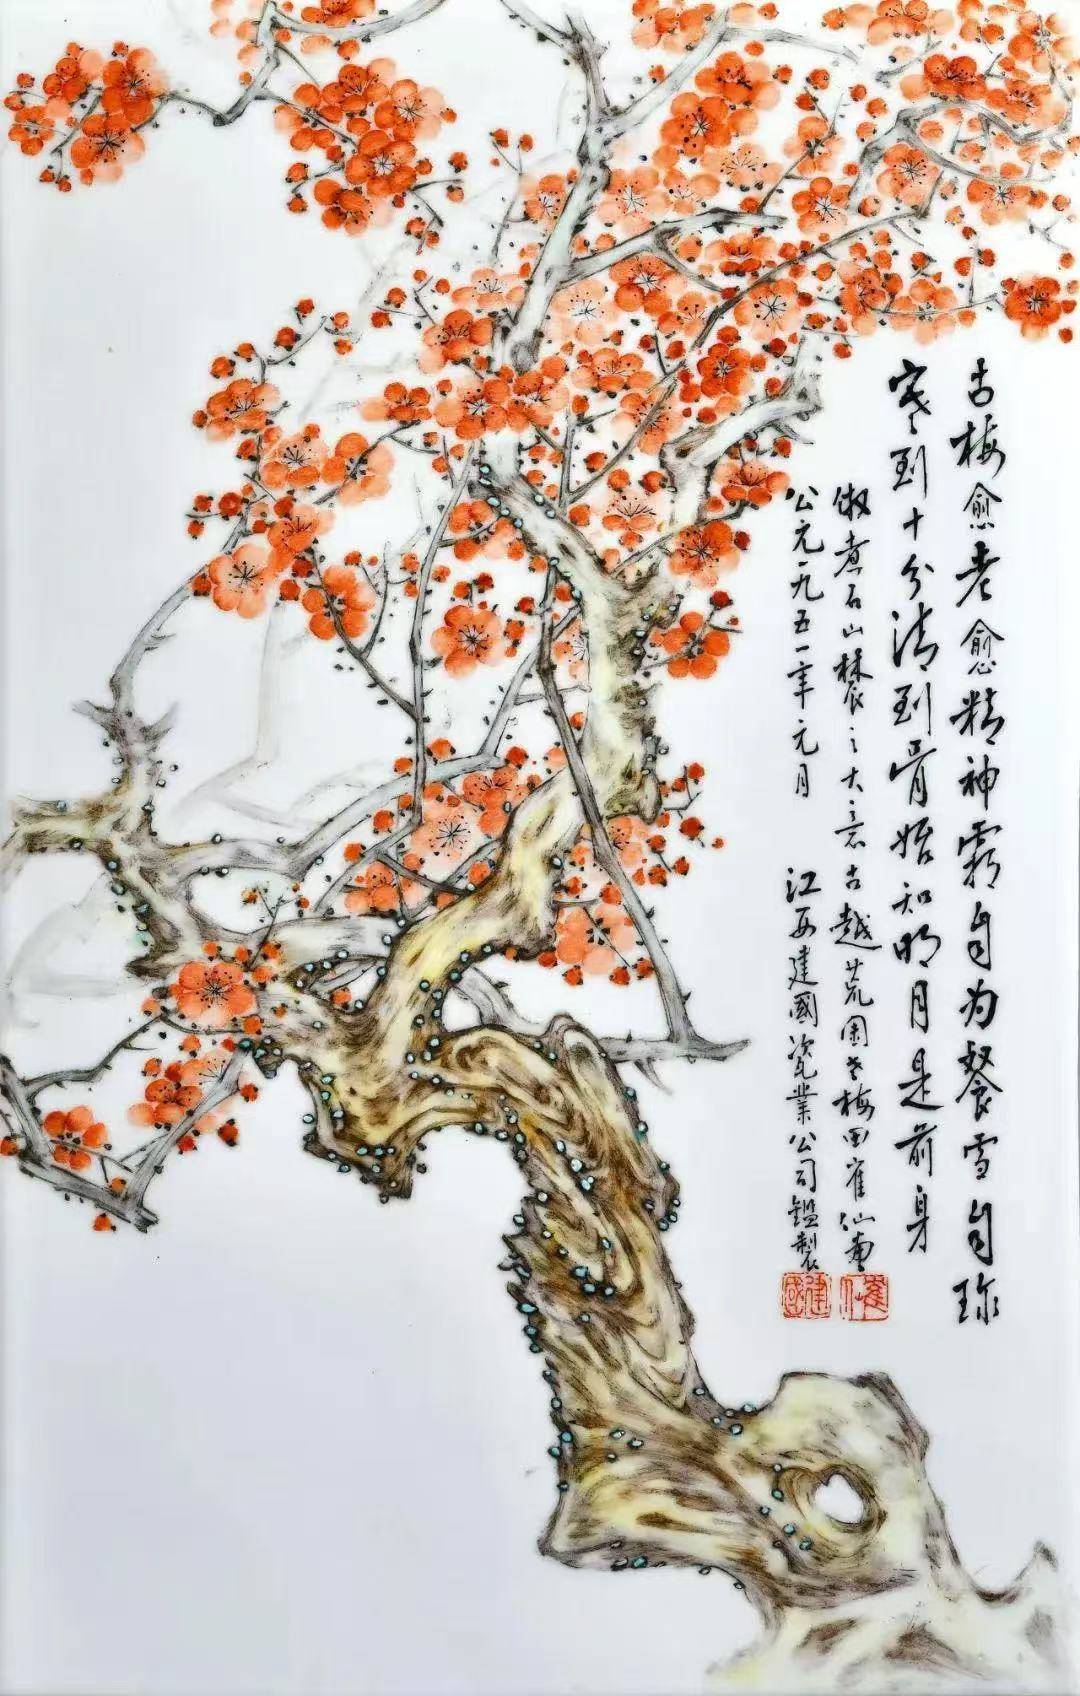 古梅愈老愈精神霜自为餐雪自珍
寒到十分清到骨始知明月是前身
倣煮石山辳之大意古越荒園老梅田寉仙畫
公元一九五一年元月 江西建國瓷業公司鑑製
寉仙
建國